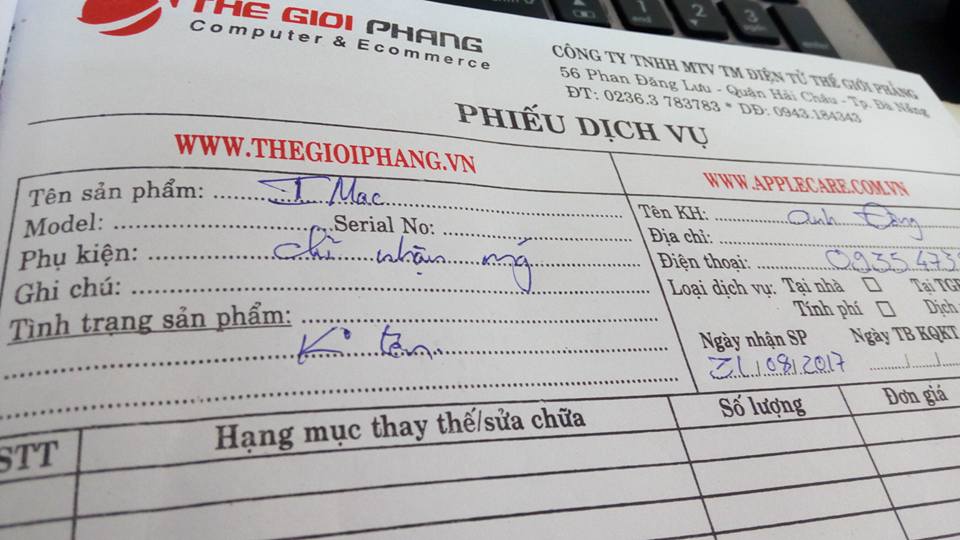 THẾ GIỚI PHẲNG
Computer & Ecommerce
CÔNG TY TNHH MTV TM ĐIỆN TỬ THẾ GIỚI PHẲNG
56 Phan Đăng Lưu - Quận Hải Châu - Tp. Đà Nẵng
ĐT: 0236.3 783783 * DĐ: 0943.184343
PHIẾU DỊCH VỤ
WWW.THEGIOIPHANG.VN
Tên sản phẩm: I Mac
Model: Serial No:
Phụ kiện: chỉ nhận
Ghi chú:
Tình trạng sản phẩm:
K° lên
WWW.APPLECARE.COM.VN
Tên KH: anh
Địa chỉ:
Điện thoại: 0935473
Loại dịch vụ: Tại nhà Tại
Tính phí Dịch
Ngày nhận SP Ngày TB KQKT
21/08/2017
STT Hạng mục thay thế/sửa chữa Số lượng Đơn giá
1
2
3